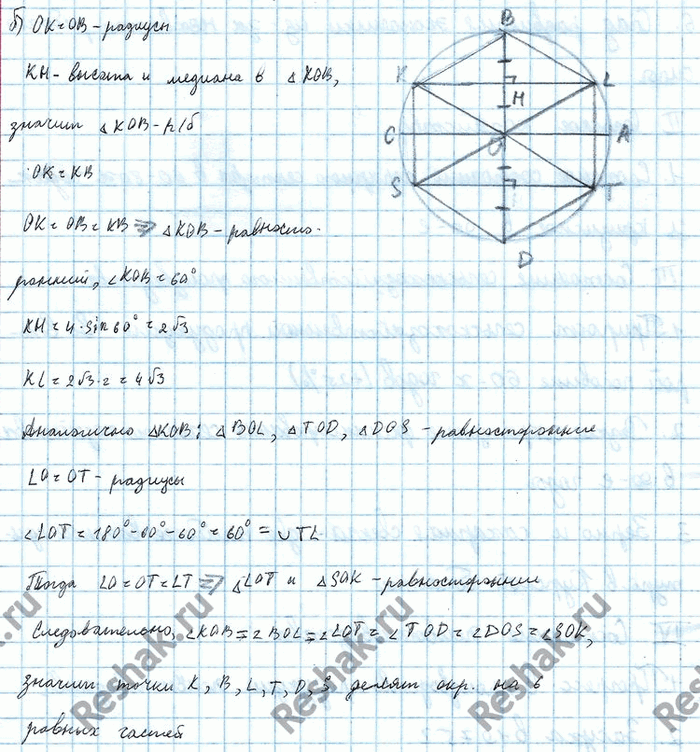 б) OK=OB-радиусы
KH-высота и медиана в △KOB,
значит △KOB-р/б
OK=KB
OK=OB=KB ⇒ △KOB-равносто-
ронний, ∠KOB=60°
KH=4·sin60°=2√3
KL=2√3·2=4√3
Аналогично △KOB: △BOL, △TOD, △DOS-равносторонние
LO=OT-радиусы
∠LOT=180°-60°-60°=60°=∪TL
Тогда LO=OT=LT ⇒ △LOT и △SOK-равносторонние
Следовательно, ∠KOB=∠BOL=∠LOT=∠TOD=∠DOS=∠SOK,
значит точки K, B, L, T, D, S делят окр. на 6
равных частей
B
K L
H
C O A
S T
D
Reshak.ru
Reshak.ru
Reshak.ru
Reshak.ru